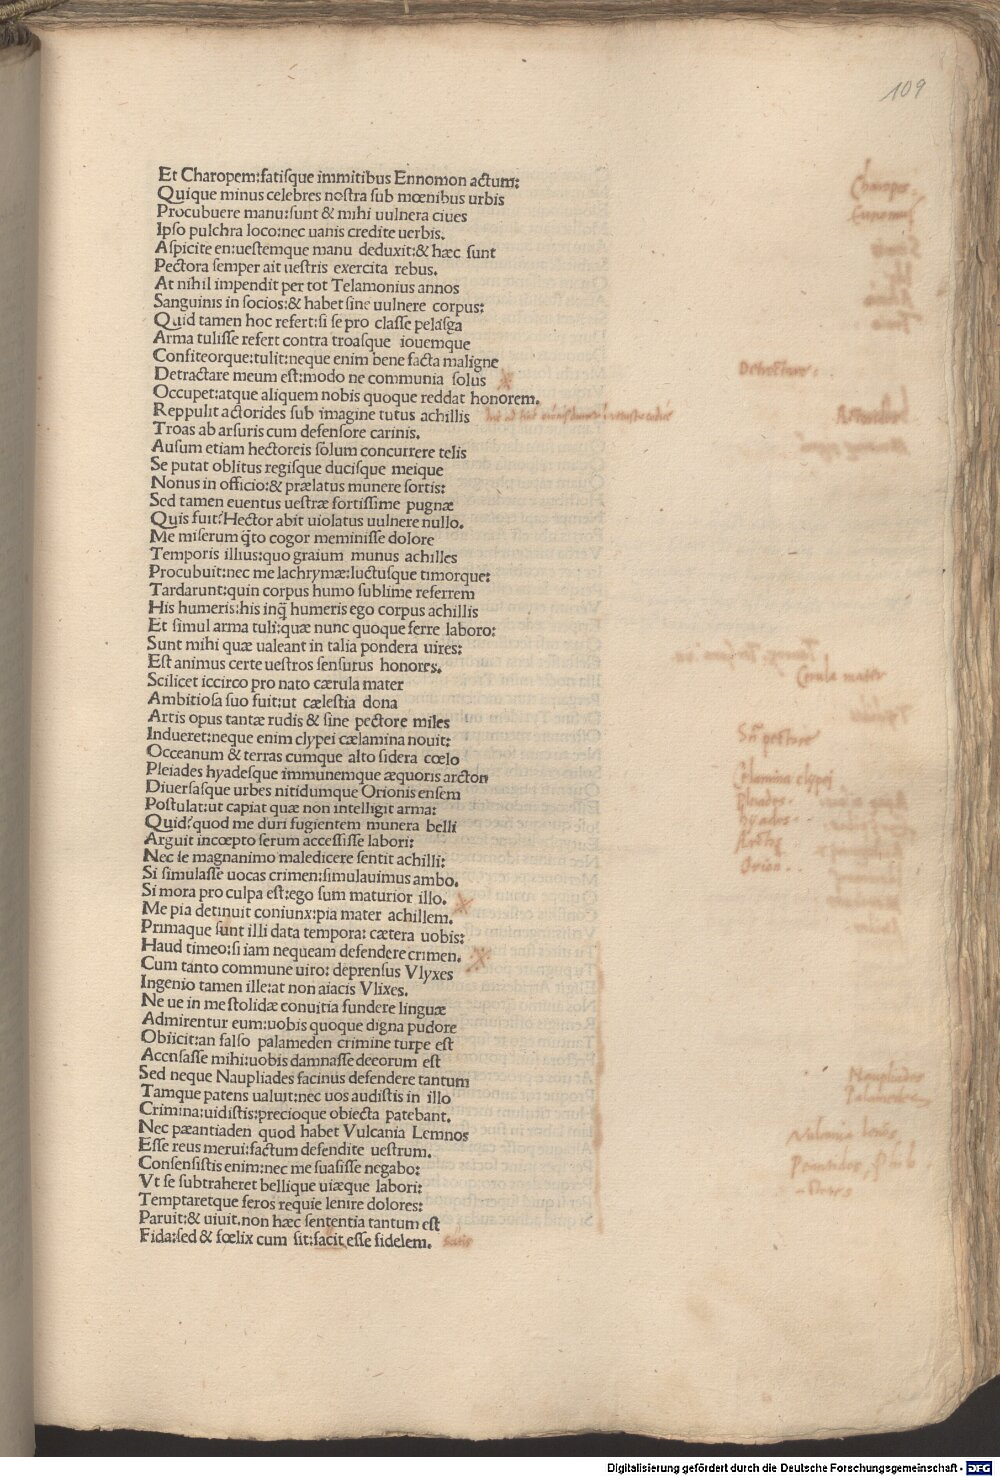 109
Et Charopem:fatisque immitibus Ennomon actum:
Charopes.
Quique minus celebres nostra sub mœnibus urbis
Procubuere manu:sunt & mihi uulnera ciues
Ipso pulchra loco:nec uanis credite uerbis.
Aspicite en:uestemque manu deduxit:& hæc sunt
Pectora semper ait uestris exercita rebus.
At nihil impendit per tot Telamonius annos
Sanguinis in socios:& habet sine uulnere corpus:
Quid tamen hoc refert:si se pro classe pelasga
Arma tulisse refert contra troasque iouemque
Confiteorque:tulit:neque enim bene facta maligne
Detractare meum est:modo ne communia solus
Detrectare.
Occupet:atque aliquem nobis quoque reddat honorem.
Reppulit actorides sub imagine tutus achillis
Troas ab arsuris cum defensore carinis.
Ausum etiam hectoreis solum concurrere telis
Se putat oblitus regisque ducisque meique
Nonus in officio:& prælatus munere sortis:
Sed tamen euentus uestræ fortissime pugnæ
Quis fuit?Hector abit uiolatus uulnere nullo.
Me miserum q̃to cogor meminisse dolore
Temporis illius:quo graium munus achilles
Procubuit:nec me lachrymæ:luctusque timorque:
Tardarunt:quin corpus humo sublime referrem
His humeris:his inq̃ humeris ego corpus achillis
Et simul arma tuli:quæ nunc quoque ferre laboro:
Sunt mihi quæ ualeant in talia pondera uires:
Est animus certe uestros sensurus honores.
Scilicet iccirco pro nato cærula mater
Cerula mater
Ambitiosa suo fuit:ut cælestia dona
Artis opus tantæ rudis & sine pectore miles
Sñ pectore
Indueret:neque enim clypei cælamina nouit:
Occeanum & terras cumque alto sidera cœlo
Pleiades hyadesque immunemque æquoris arcton
Celamina clypei
Diuersasque urbes nitidumque Orionis ensem
Pleades.
Postulat:ut capiat quæ non intelligit arma:
hyades.
Quid?quod me duri fugientem munera belli
Arguit incœpto serum accessisse labori:
Nec se magnanimo maledicere sentit achilli:
Orion.
Si simulasse uocas crimen:simulauimus ambo.
Si mora pro culpa est:ego sum maturior illo.
Me pia detinuit coniunx:pia mater achillem.
Primaque sunt illi data tempora: cætera uobis:
Haud timeo:si iam nequeam defendere crimen.
Cum tanto commune uiro: deprensus Vlyxes
Ingenio tamen ille:at non aiacis Vlixes.
Ne ue in me stolidæ conuitia fundere linguæ
Admirentur eum:uobis quoque digna pudore
Obiicit:an falso palameden crimine turpe est
Accusasse mihi:uobis damnasse decorum est
Sed neque Naupliades facinus defendere tantum
Naupliades
Tamque patens ualuit:nec uos audistis in illo
Palamedes
Crimina:uidistis:precioque obiecta patebant.
Nec pæantiaden quod habet Vulcania Lemnos
Esse reus merui:factum defendite uestrum.
Consensistis enim:nec me suasisse negabo:
Vt se subtraheret bellique uiæque labori:
Temptaretque feros requie lenire dolores:
Paruit:& uiuit.non hæc sententia tantum est
Fida:sed & fœlix cum sit:facit esse fidelem.
satis
Digitalisierung gefördert durch die Deutsche Forschungsgemeinschaft - DFG